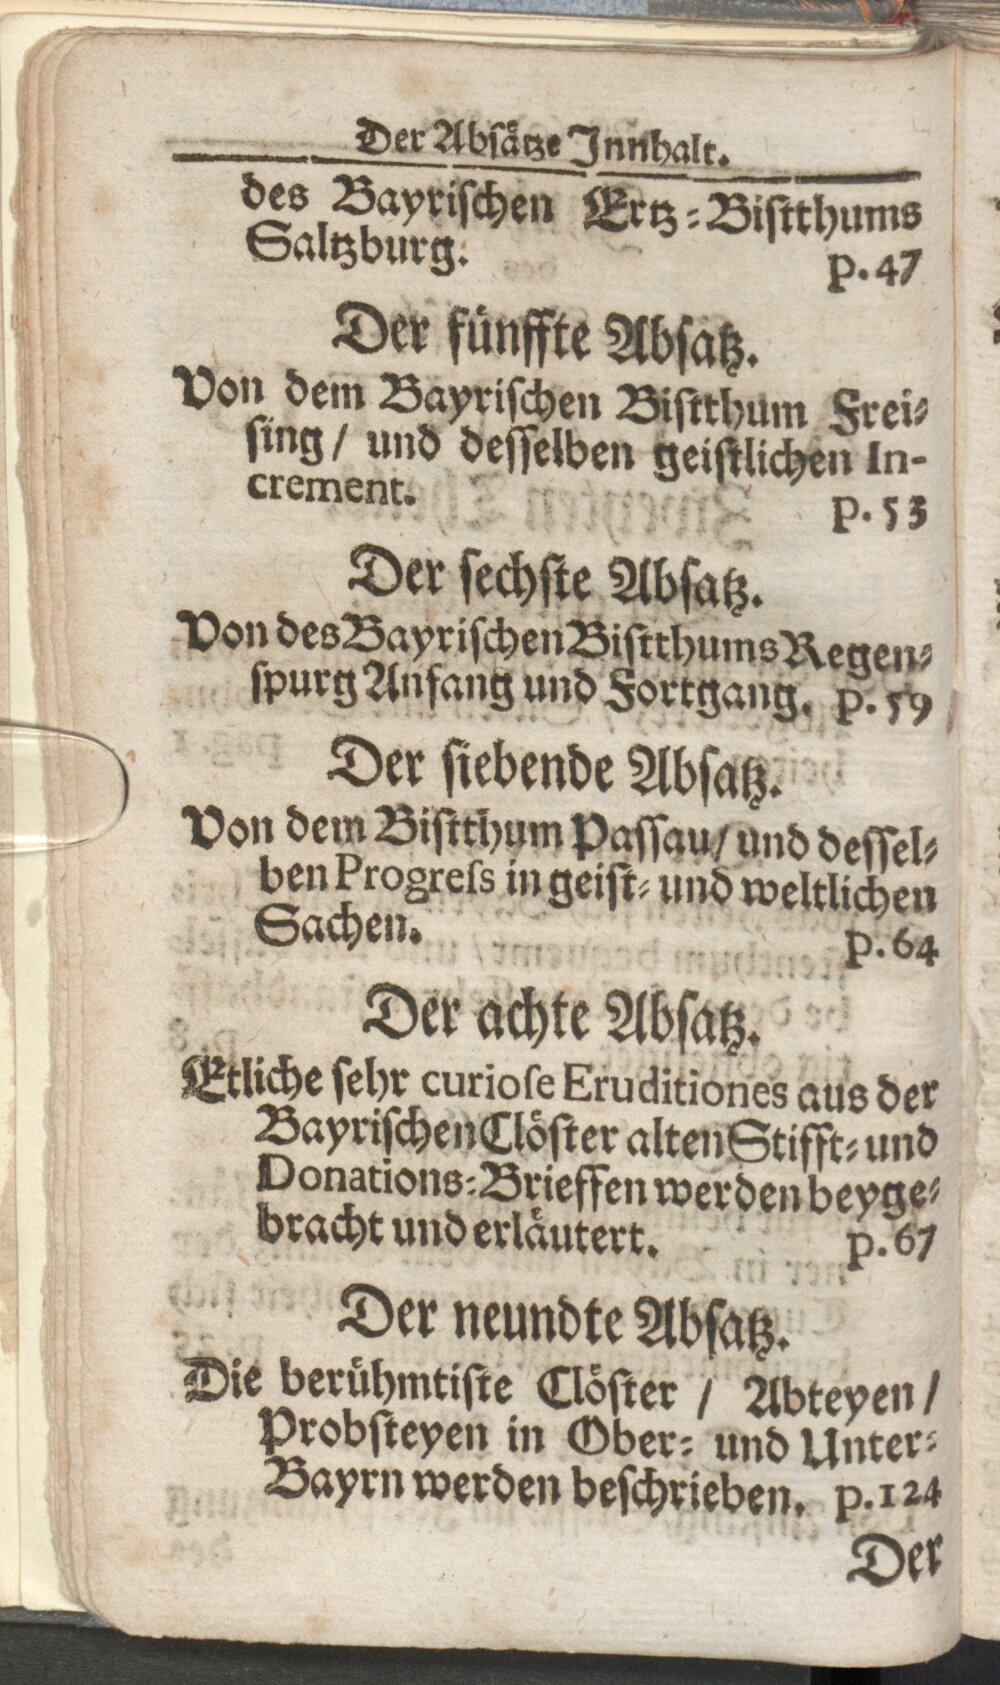 Der Absätze Innhalt.
des Bayrischen Ertz-Bistthums
Saltzburg. p. 47
Der fünffte Absatz.
Von dem Bayrischen Bistthum Frei-
sing / und desselben geistlichen In-
crement. p. 53
Der sechste Absatz.
Von des Bayrischen Bistthums Regen-
spurg Anfang und Fortgang. p. 59
Der siebende Absatz.
Von dem Bistthum Passau / und dessel-
ben Progreſs in geist- und weltlichen
Sachen. p. 64
Der achte Absatz.
Etliche sehr curioſe Eruditiones aus der
Bayrischen Clöster alten Stifft- und
Donations-Brieffen werden beyge-
bracht und erläutert. p. 67
Der neundte Absatz.
Die berühmtiste Clöster / Abteyen /
Probsteyen in Ober- und Unter-
Bayrn werden beschrieben. p. 124
Der